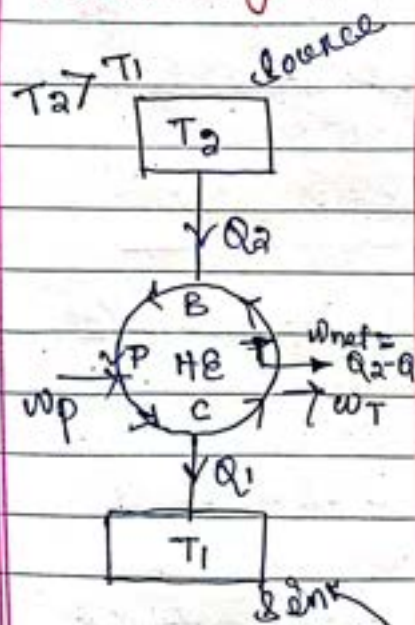 T2 > T1
Source
T2
Q2
B
P HE T
Wnet =
Q2-Q
WP
C
WT
Q1
T1
Sink